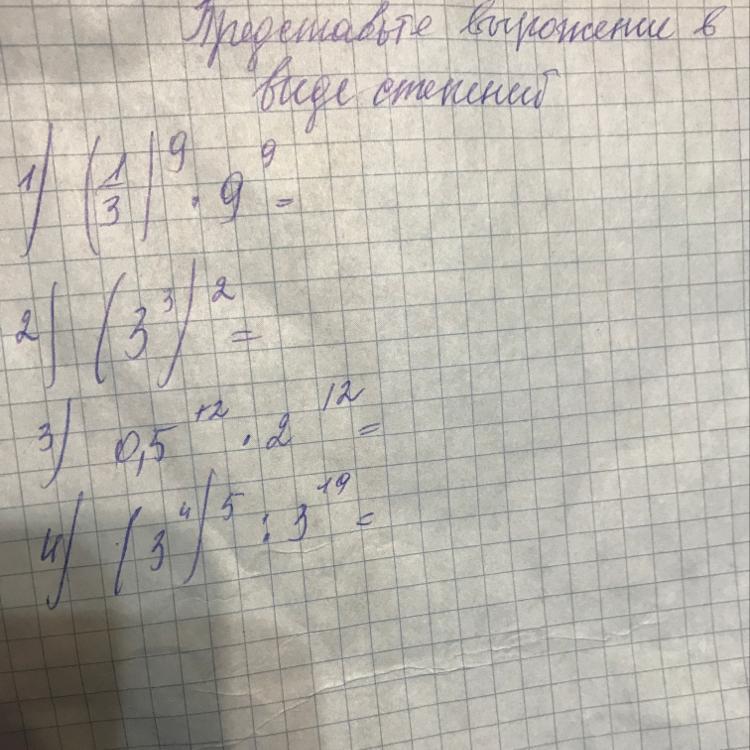 Представьте вырожение в
виде степений
1) (1/3)⁹ · 9⁹ =
2) (3³)² =
3) 0,5¹² · 2¹² =
4) (3⁴)⁵ : 3¹⁹ =